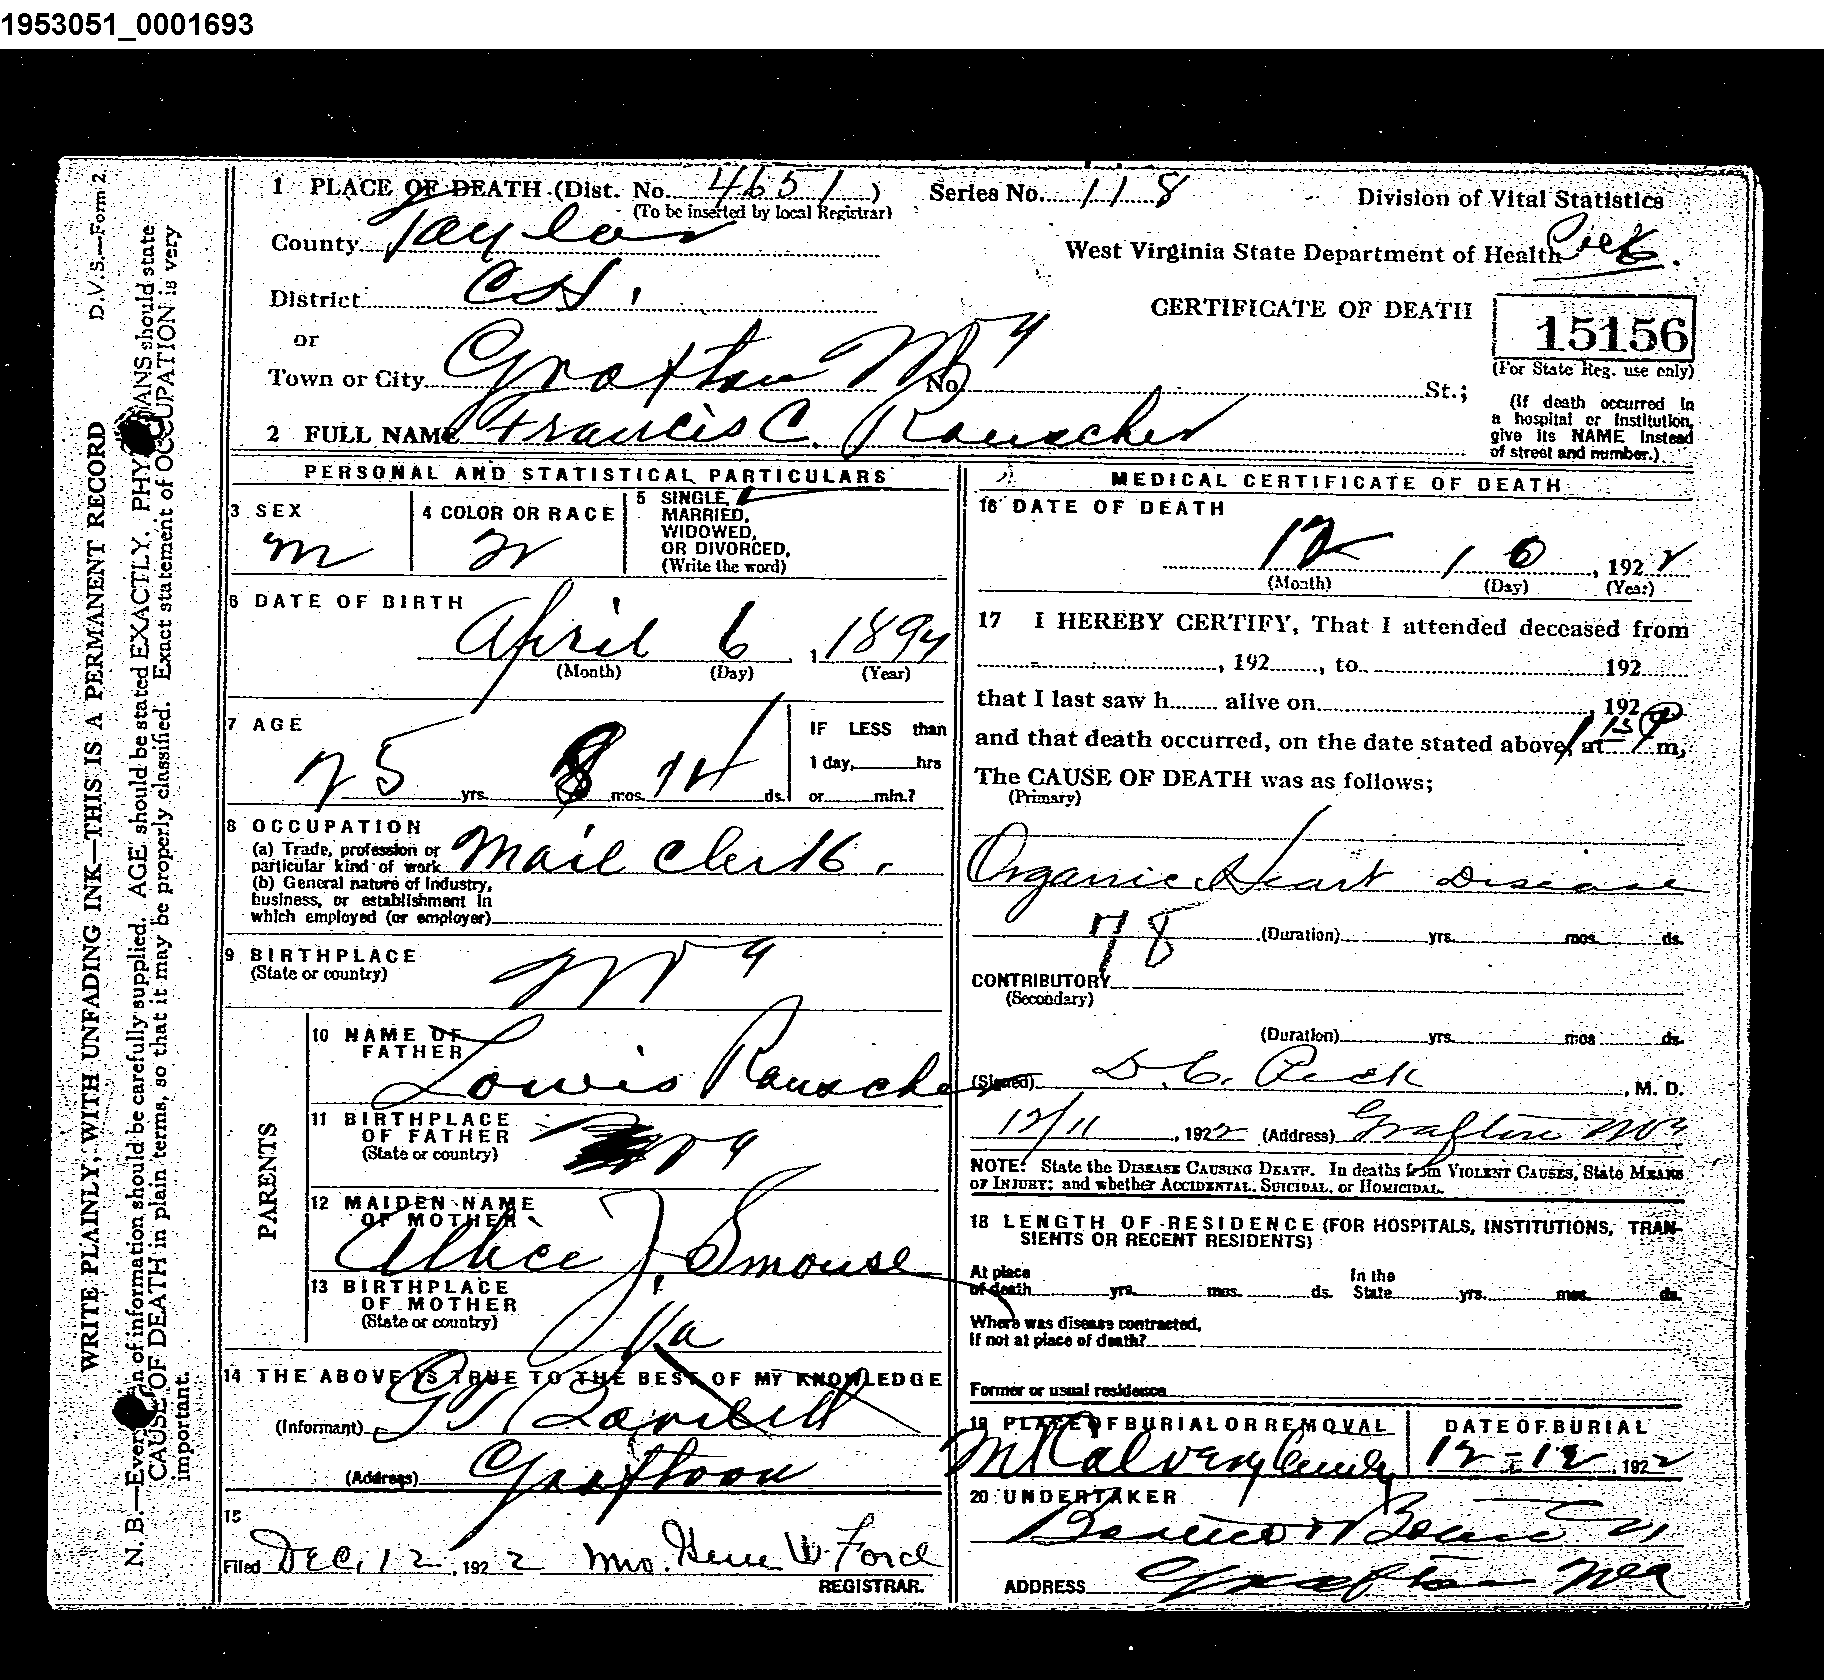 1953051_0001693
D.V.S.—Form 2
WRITE PLAINLY, WITH UNFADING INK—THIS IS A PERMANENT RECORD
N. B.—Every item of information should be carefully supplied. AGE should be stated EXACTLY. PHYSICIANS should state
CAUSE OF DEATH in plain terms, so that it may be properly classified. Exact statement of OCCUPATION is very
important.
1 PLACE OF DEATH (Dist. No. 4651 ) Series No. 118 Division of Vital Statistics
(To be inserted by local Registrar)
County Taylor West Virginia State Department of Health
District
CERTIFICATE OF DEATH
15156
(For State Reg. use only)
or
Town or City Grafton No. St.;
(If death occurred in
a hospital or institution,
give its NAME instead
of street and number.)
2 FULL NAME Francis C. Rauscher
PERSONAL AND STATISTICAL PARTICULARS
3 SEX
m
4 COLOR OR RACE
W
5 SINGLE,
MARRIED,
WIDOWED,
OR DIVORCED,
(Write the word)
6 DATE OF BIRTH
April 6, 1894
(Month) (Day) (Year)
7 AGE
25 yrs. 8 mos. 14 ds.
IF LESS than
1 day, hrs
or min.?
8 OCCUPATION
(a) Trade, profession or
particular kind of work Mail Clerk.
(b) General nature of Industry,
business, or establishment in
which employed (or employer)
9 BIRTHPLACE
(State or country)
W Va
PARENTS
10 NAME OF
FATHER
Lowis Rauscher
11 BIRTHPLACE
OF FATHER
(State or country)
12 MAIDEN NAME
OF MOTHER
Allice J. Smouse
13 BIRTHPLACE
OF MOTHER
(State or country)
Va
14 THE ABOVE IS TRUE TO THE BEST OF MY KNOWLEDGE
(Informant)
(Address) Graftoon
15
Filed Dec. 12, 1922 Mrs. W. Ford
REGISTRAR.
MEDICAL CERTIFICATE OF DEATH
16 DATE OF DEATH
12 10, 1922
(Month) (Day) (Year)
17 I HEREBY CERTIFY, That I attended deceased from
, 192 , to 192
that I last saw h alive on , 192
and that death occurred, on the date stated above, at m,
The CAUSE OF DEATH was as follows;
(Primary)
Organic Heart Disease
78 (Duration) yrs. mos. ds.
CONTRIBUTORY
(Secondary)
(Duration) yrs. mos ds.
(Signed) D. C. Peck , M. D.
12/11, 1922 (Address) Grafton W Va
NOTE: State the DISEASE CAUSING DEATH. In deaths from VIOLENT CAUSES, State MEANS
OF INJURY; and whether ACCIDENTAL, SUICIDAL, or HOMICIDAL.
18 LENGTH OF RESIDENCE (FOR HOSPITALS, INSTITUTIONS, TRAN-
SIENTS OR RECENT RESIDENTS)
At place
of death yrs. mos. ds.
In the
State yrs. mos. ds.
Where was disease contracted,
if not at place of death?
Former or usual residence
19 PLACE OF BURIAL OR REMOVAL
Mt Calvery
DATE OF BURIAL
12-12 1922
20 UNDERTAKER
ADDRESS Grafton W Va